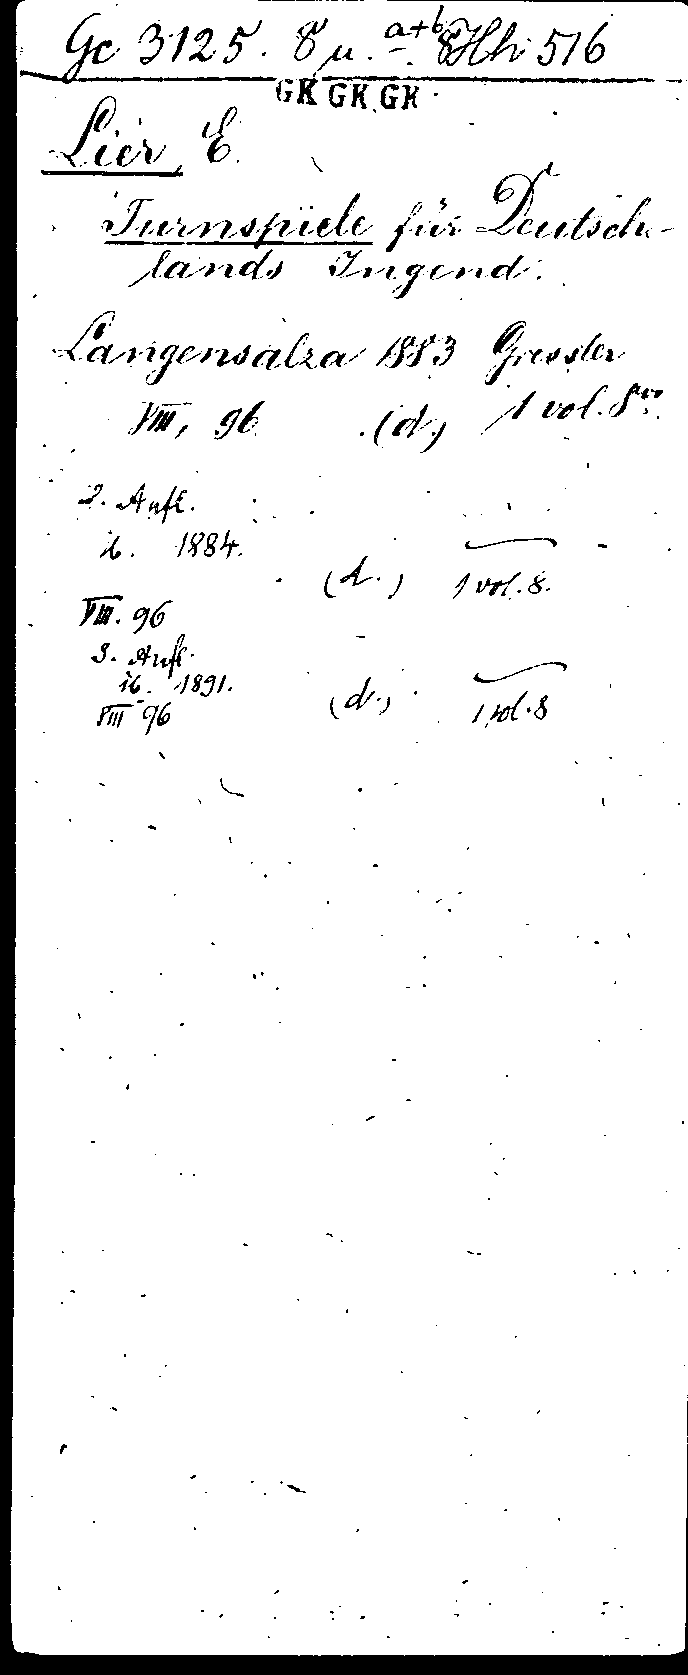 Gc 3125. 8° u. a+b. 8° Hh 516
GK GK GK
Lier, E.
Turnspiele für Deutsch-
lands Jugend.
Langensalza 1883 Gressler
VIII, 96 (d.) 1 vol. 8vo.
2. Aufl.
ib. 1884.
(d.) 1 vol. 8.
VIII. 96
3. Aufl.
ib. 1891.
VIII 96 (d.) 1 vol. 8